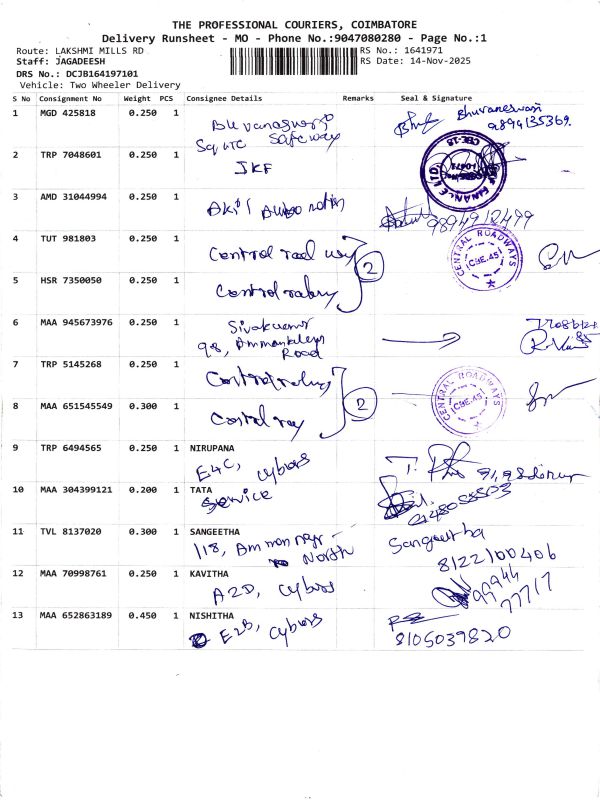 THE PROFESSIONAL COURIERS, COIMBATORE
Delivery Runsheet - MO - Phone No.:9047080280 - Page No.:1
Route: LAKSHMI MILLS RD
RS No.: 1641971
Staff: JAGADEESH
RS Date: 14-Nov-2025
DRS No.: DCJB164197101
Vehicle: Two Wheeler Delivery
S No Consignment No Weight PCS Consignee Details Remarks Seal & Signature
1 MGD 425818 0.250 1
Bhuvaneswari
9894135369.
2 TRP 7048601 0.250 1 JKF
3 AMD 31044994 0.250 1 Akil
9894912499
4 TUT 981803 0.250 1 Central road way
2
CENTRAL ROADWAYS
CBE.45
5 HSR 7350050 0.250 1
6 MAA 945673976 0.250 1 Sivakumar
98, Ammankulam
Road
7 TRP 5145268 0.250 1
2
CENTRAL ROADWAYS
CBE.45
8 MAA 651545549 0.300 1
9 TRP 6494565 0.250 1 NIRUPANA
E4C, Cybers
10 MAA 304399121 0.200 1 TATA
Service
11 TVL 8137020 0.300 1 SANGEETHA
118, Amman nagr
North
Sangeetha
8122100406
12 MAA 70998761 0.250 1 KAVITHA
A2D, Cybers
99944
77717
13 MAA 652863189 0.450 1 NISHITHA
E2B, Cybers
8105039820